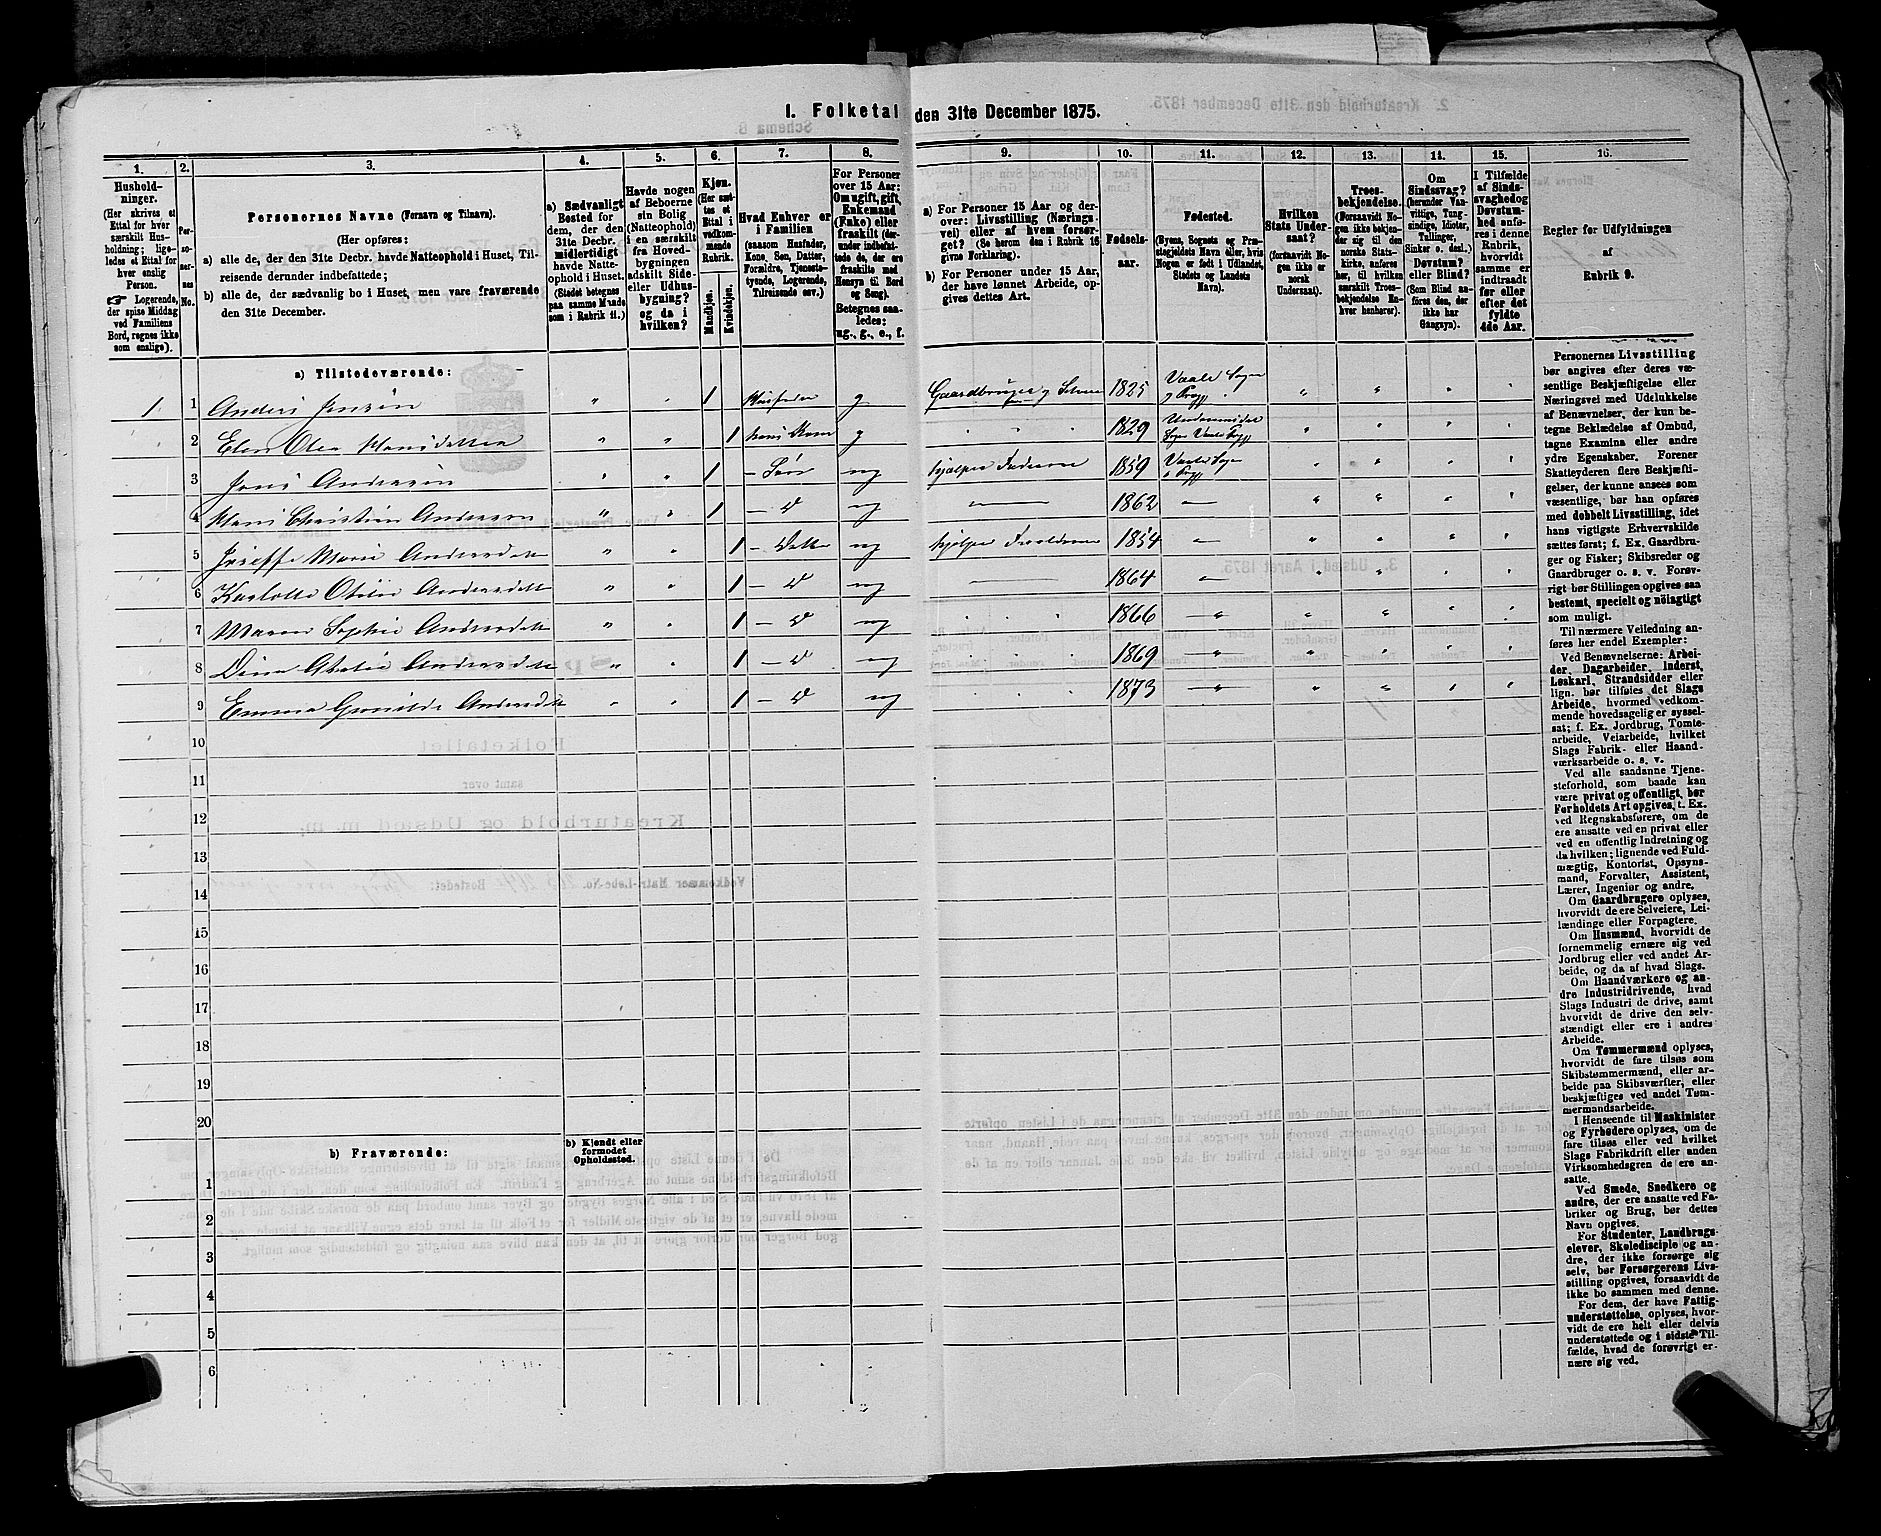 I. Folketal den 31te December 1875.
1. 2. 3. 4. 5. 6. 7. 8. 9. 10. 11. 12. 13. 14. 15. 16.
Hushold-
ninger.
(Her skrives et
Ettal for hver
særskilt Hus-
holdning; lige-
ledes et Ettal for
hver enslig
Person.
☞ Logerende,
der spise Middag
ved Familiens
Bord, regnes ikke
som enslige).
Per-
so-
ner-
nes
No.
Personernes Navne (Fornavn og Tilnavn).
(Her opføres:
a) alle de, der den 31te Decbr. havde Natteophold i Huset, Til-
reisende derunder indbefattede;
b) alle de, der sædvanlig bo i Huset, men vare fraværende
den 31te December.
a) Sædvanligt
Bosted for
dem, der den
31te Decbr.
midlertidigt
havde Natte-
ophold i Huset.
(Stedet betegnes
paa samme Maade
som i Rubrik 11.)
Havde nogen
af Beboerne
sin Bolig
(Natteophold)
i en særskilt
fra Hoved-
bygningen
adskilt Side-
eller Udhus-
bygning?
og da i
hvilken?
Kjøn.
(Her sæt-
tes et
Ettal i
vedkom-
mende
Rubrik.
Mandkjøn.
Kvindekjøn.
Hvad Enhver er
i Familien
(saasom Husfader,
Kone, Søn, Datter,
Forældre, Tjeneste-
tyende, Logerende,
Tilreisende osv.)
For Personer
over 15 Aar:
Om ugift, gift,
Enkemand
(Enke) eller
fraskilt (der-
under indbefat-
tede de, der ere
fraskilte med
Hensyn til Bord
og Seng).
Betegnes saa-
ledes:
ug., g., e., f.
a) For Personer 15 Aar og der-
over: Livsstilling (Nærings-
vei) eller af hvem forsør-
get? (Se herom den i Rubrik 16
givne Forklaring).
b) For Personer under 15 Aar,
der have lønnet Arbeide, op-
gives dettes Art.
Fødsels-
aar.
Fødested.
(Byens, Sognets og Præ-
stegjeldets Navn eller, hvis
Nogen er født i Udlandet,
Stedets og Landets
Navn).
Hvilken
Stats Under-
saat?
(forsaavidt No-
gen ikke er
norsk
Undersaat).
Troes-
bekjendelse.
(Forsaavidt No-
gen ikke bekjen-
der sig til den
norske Stats-
kirke, anføres
her, til hvilken
særskilt Troes-
bekjendelse En-
hver henhører).
Om
Sindssvag?
(herunder Van-
vittige, Tung-
sindige, Idioter,
Tullinger,
Sinker o. desl.)
Døvstum?
eller Blind?
(Som Blind an-
føres den, der
ikke har
Gangsyn).
I Tilfælde
af Sinds-
svaghed og
Døvstum-
hed anfø-
res i denne
Rubrik,
hvorvidt
samme er
indtraadt
før eller
efter det
fyldte
4de Aar.
Regler for Udfyldningen
af
Rubrik 9.
a) Tilstedeværende:
1 1 Anders Jensen " " 1 Husfader g Gaardbruger og Selveier 1825 Vaale Sogn og Prgj. " " " "
2 Elen Olea Hansdatter " " 1 hans Kone g " " " 1829 Undrumsdal Sogn Vaale Prgj " " " "
3 Jens Anderssen " " 1 – Søn ug hjælper Faderen 1859 Vaale Sogn og Prgj " " " "
4 Hans Christian Andersen " " 1 – D ug — 1862 — " " " "
5 Joseffe Marie Andersdatt " " 1 – Datter ug hjælper Forældrene 1854 — " " " "
6 Karlotte Otilie Andersdatt " " 1 – D ug — 1864 — " " " "
7 Maren Sophie Andersdatt " " 1 – D ug " " " 1866 — " " " "
8 Dina Amalie Andersdatt " " 1 – D ug " " " 1869 — " " " "
9 Emma Gunilde Andersdatt " " 1 – D ug " " " 1873 — " " " "
10
11
12
13
14
15
16
17
18
19
20
b) Fraværende:
b) Kjendt eller
formodet
Opholdssted.
1
2
3
4
5
6
Personernes Livsstilling
bør angives efter deres væ-
sentlige Beskjæftigelse eller
Næringsvei med Udelukkelse
af Benævnelser, der kun be-
tegne Beklædelse af Ombud,
tagne Examina eller andre
ydre Egenskaber. Forener
Skatteyderen flere Beskjæfti-
gelser, der kunne ansees som
væsentlige, bør han opføres
med dobbelt Livsstilling, idet
hans vigtigste Erhvervskilde
sættes først; f. Ex. Gaardbru-
ger og Fisker; Skibsreder og
Gaardbruger o. s. v. Forøv-
rigt bør Stillingen opgives saa
bestemt, specielt og nøiagtigt
som muligt.
Til nærmere Veiledning an-
føres her endel Exempler:
Ved Benævnelserne: Arbei-
der, Dagarbeider, Inderst,
Løskarl, Strandsidder eller
lign. bør tilføies det Slags
Arbeide, hvormed vedkom-
mende hovedsagelig er syssel-
sat; f. Ex. Jordbrug, Tomte-
arbeide, Veiarbeide, hvilket
Slags Fabrik- eller Haand-
værksarbeide o. s. v.
Ved alle saadanne Tjene-
steforhold, som baade kan
være privat og offentligt, bør
Forholdets Art opgives, t. Ex.
ved Regnskabsførere, om de
ere ansatte ved en privat eller
ved en offentlig Indretning og
da hvilken; lignende ved Fuld-
mægtig, Kontorist, Opsyns-
mand, Forvalter, Assistent,
Lærer, Ingeniør og andre.
Om Gaardbrugere oplyses,
hvorvidt de ere Selveiere, Lei-
lændinge eller Forpagtere.
Om Husmænd, hvorvidt de
fornemmelig ernære sig ved
Jordbrug eller ved andet Ar-
beide, og da af hvad Slags.
Om Haandværkere og an-
dre Industridrivende, hvad
Slags Industri de drive, samt
hvorvidt de drive den selv-
stændigt eller ere i andres
Arbeide.
Om Tømmermænd oplyses,
hvorvidt de fare tilsøs som
Skibstømmermænd, eller ar-
beide paa Skibsværfter, eller
beskjæftiges ved andet Tøm-
mermandsarbeide.
I Henseende til Maskinister
og Fyrbødere oplyses, om de
fare tilsøs eller ved hvilket
Slags Fabrikdrift eller anden
Virksomhedsgren de ere an-
satte.
Ved Smede, Snedkere og
andre, der ere ansatte ved Fa-
briker og Brug, bør dettes
Navn opgives.
For Studenter, Landbrugs-
elever, Skoledisciple og an-
dre, der ikke forsørge sig
selv, bør Forsørgerens Livs-
stilling opgives, forsaavidt de
ikke bo sammen med denne.
For dem, der have Fattig-
understøttelse, oplyses, hvor-
vidt de ere helt eller delvis
understøttede og i sidste Til-
fælde, hvad de forøvrigt er-
nære sig ved.